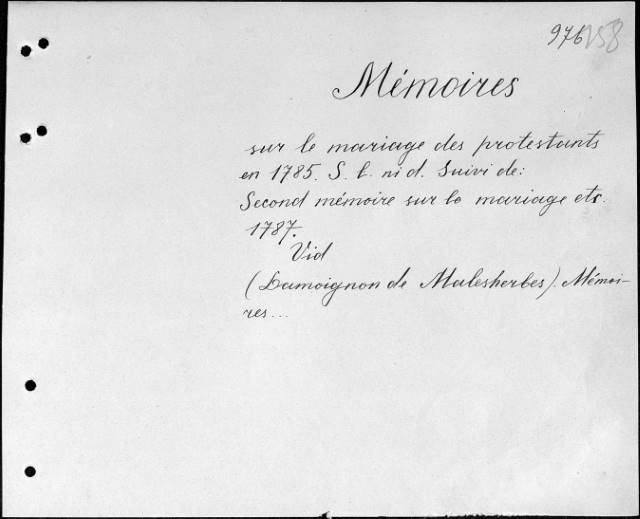 976 158
Mémoires
sur le mariage des protestants
en 1785. S. l. ni d. Suivi de:
Second mémoire sur le mariage etc.
1787.
Vid
(Lamoignon de Malesherbes). Mémoi-
res...